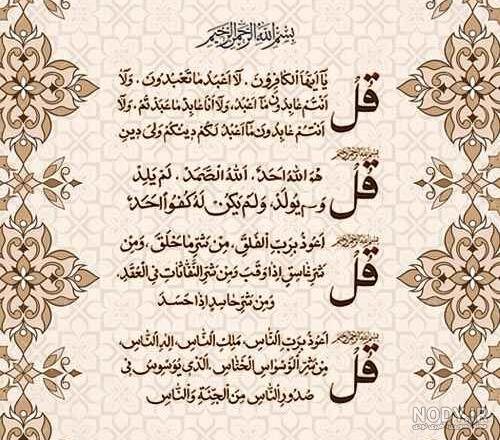 بِسْمِ اللهِ الرَّحْمٰنِ الرَّحِيمِ
قُلْ يَا اَيُّهَا الْكَافِرُونَ . لَا اَعْبُدُ مَا تَعْبُدُونَ . وَلَا
اَنْتُمْ عَابِدُونَ مَا اَعْبُدُ، وَلَا اَنَا عَابِدٌ مَا عَبَدْتُمْ، وَلَا
اَنْتُمْ عَابِدُونَ مَا اَعْبُدُ لَكُمْ دِينُكُمْ وَلِىَ دِينِ
بِسْمِ اللهِ الرَّحْمٰنِ الرَّحِيمِ
قُلْ هُوَ اللهُ اَحَدٌ . اَللهُ الْصَّمَدُ . لَمْ يَلِدْ
وَلَمْ يُولَدْ، وَلَمْ يَكُنْ لَهُ كُفُوًا اَحَدٌ
بِسْمِ اللهِ الرَّحْمٰنِ الرَّحِيمِ
قُلْ اَعُوذُ بِرَبِّ الْفَلَقِ، مِنْ شَرِّ مَا خَلَقَ، وَمِنْ
شَرِّ غَاسِقٍ اِذَا وَقَبَ وَمِنْ شَرِّ النَّفَّاثَاتِ فِى الْعُقَدِ
وَمِنْ شَرِّ حَاسِدٍ اِذَا حَسَدَ
بِسْمِ اللهِ الرَّحْمٰنِ الرَّحِيمِ
قُلْ اَعُوذُ بِرَبِّ النَّاسِ، مَلِكِ النَّاسِ، اِلٰهِ النَّاسِ،
مِنْ شَرِّ الْوَسْوَاسِ الْخَنَّاسِ، اَلَّذِى يُوَسْوِسُ فِى
صُدُورِ النَّاسِ مِنَ الْجِنَّةِ وَالنَّاسِ
NODY.IR